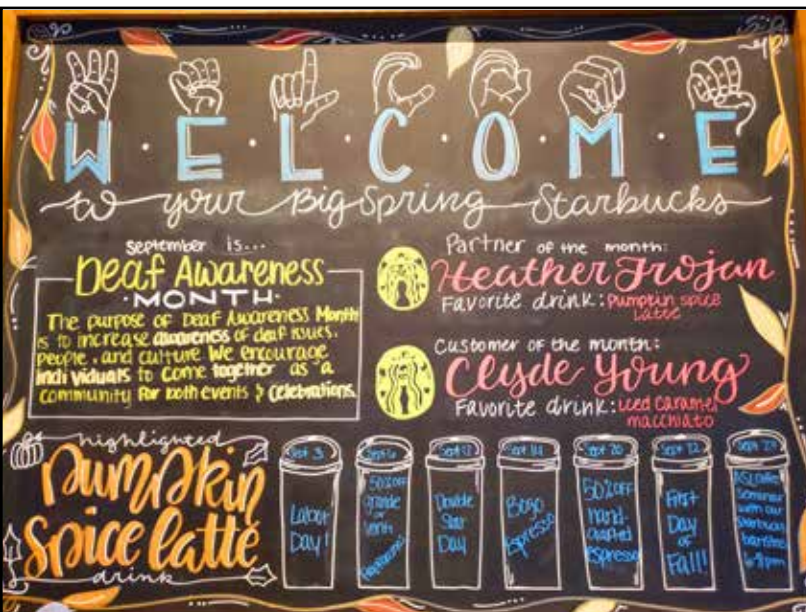 W · E · L · C · O · M · E
to your Big Spring Starbucks
September is...
Deaf Awareness
· MONTH ·
The purpose of Deaf Awareness Month
is to increase awareness of deaf issues,
people, and culture. We encourage
individuals to come together as a
community for both events & celebrations.
Partner of the month:
Heather Trojan
Favorite drink: Pumpkin spice
latte
Customer of the month:
Clyde Young
Favorite drink: iced caramel
macchiato
highlighted
Pumpkin
Spice latte
drink
Sept 3
Labor
Day!
Sept 6
50% OFF
grande
or
venti
Sept 12
Double
Star
Day
Sept 14
Bogo
Espresso
Sept 20
50% OFF
Hand-
crafted
espresso
Sept 22
First
Day
of
Fall!
Seminar
with our
Starbucks
barista